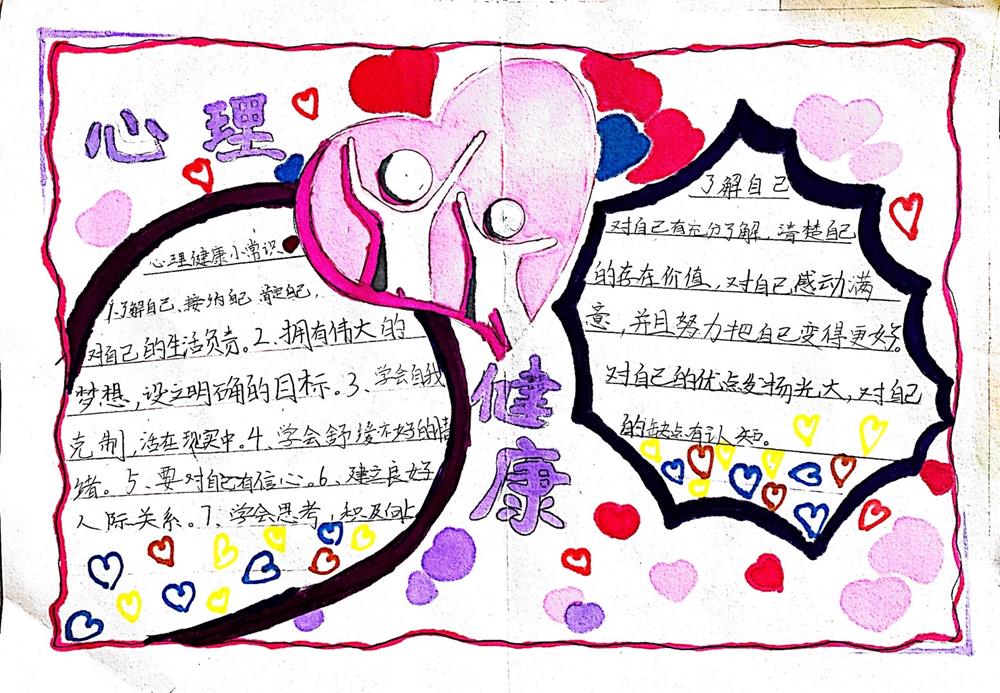 心理
健康
心理健康小常识
1.了解自己、接纳自己
对自己的生活负责。2、拥有伟大的
梦想，设立明确的目标。3、学会自我
克制，活在现实中。4、学会舒缓不好的情
绪。5、要对自己有信心。6、建立良好
人际关系。7、学会思考，积极向上
了解自己
对自己有充分了解，清楚自己
的存在价值，对自己感动满
意，并且努力把自己变得更好。
对自己的优点发扬光大，对自己
的缺点有认知。